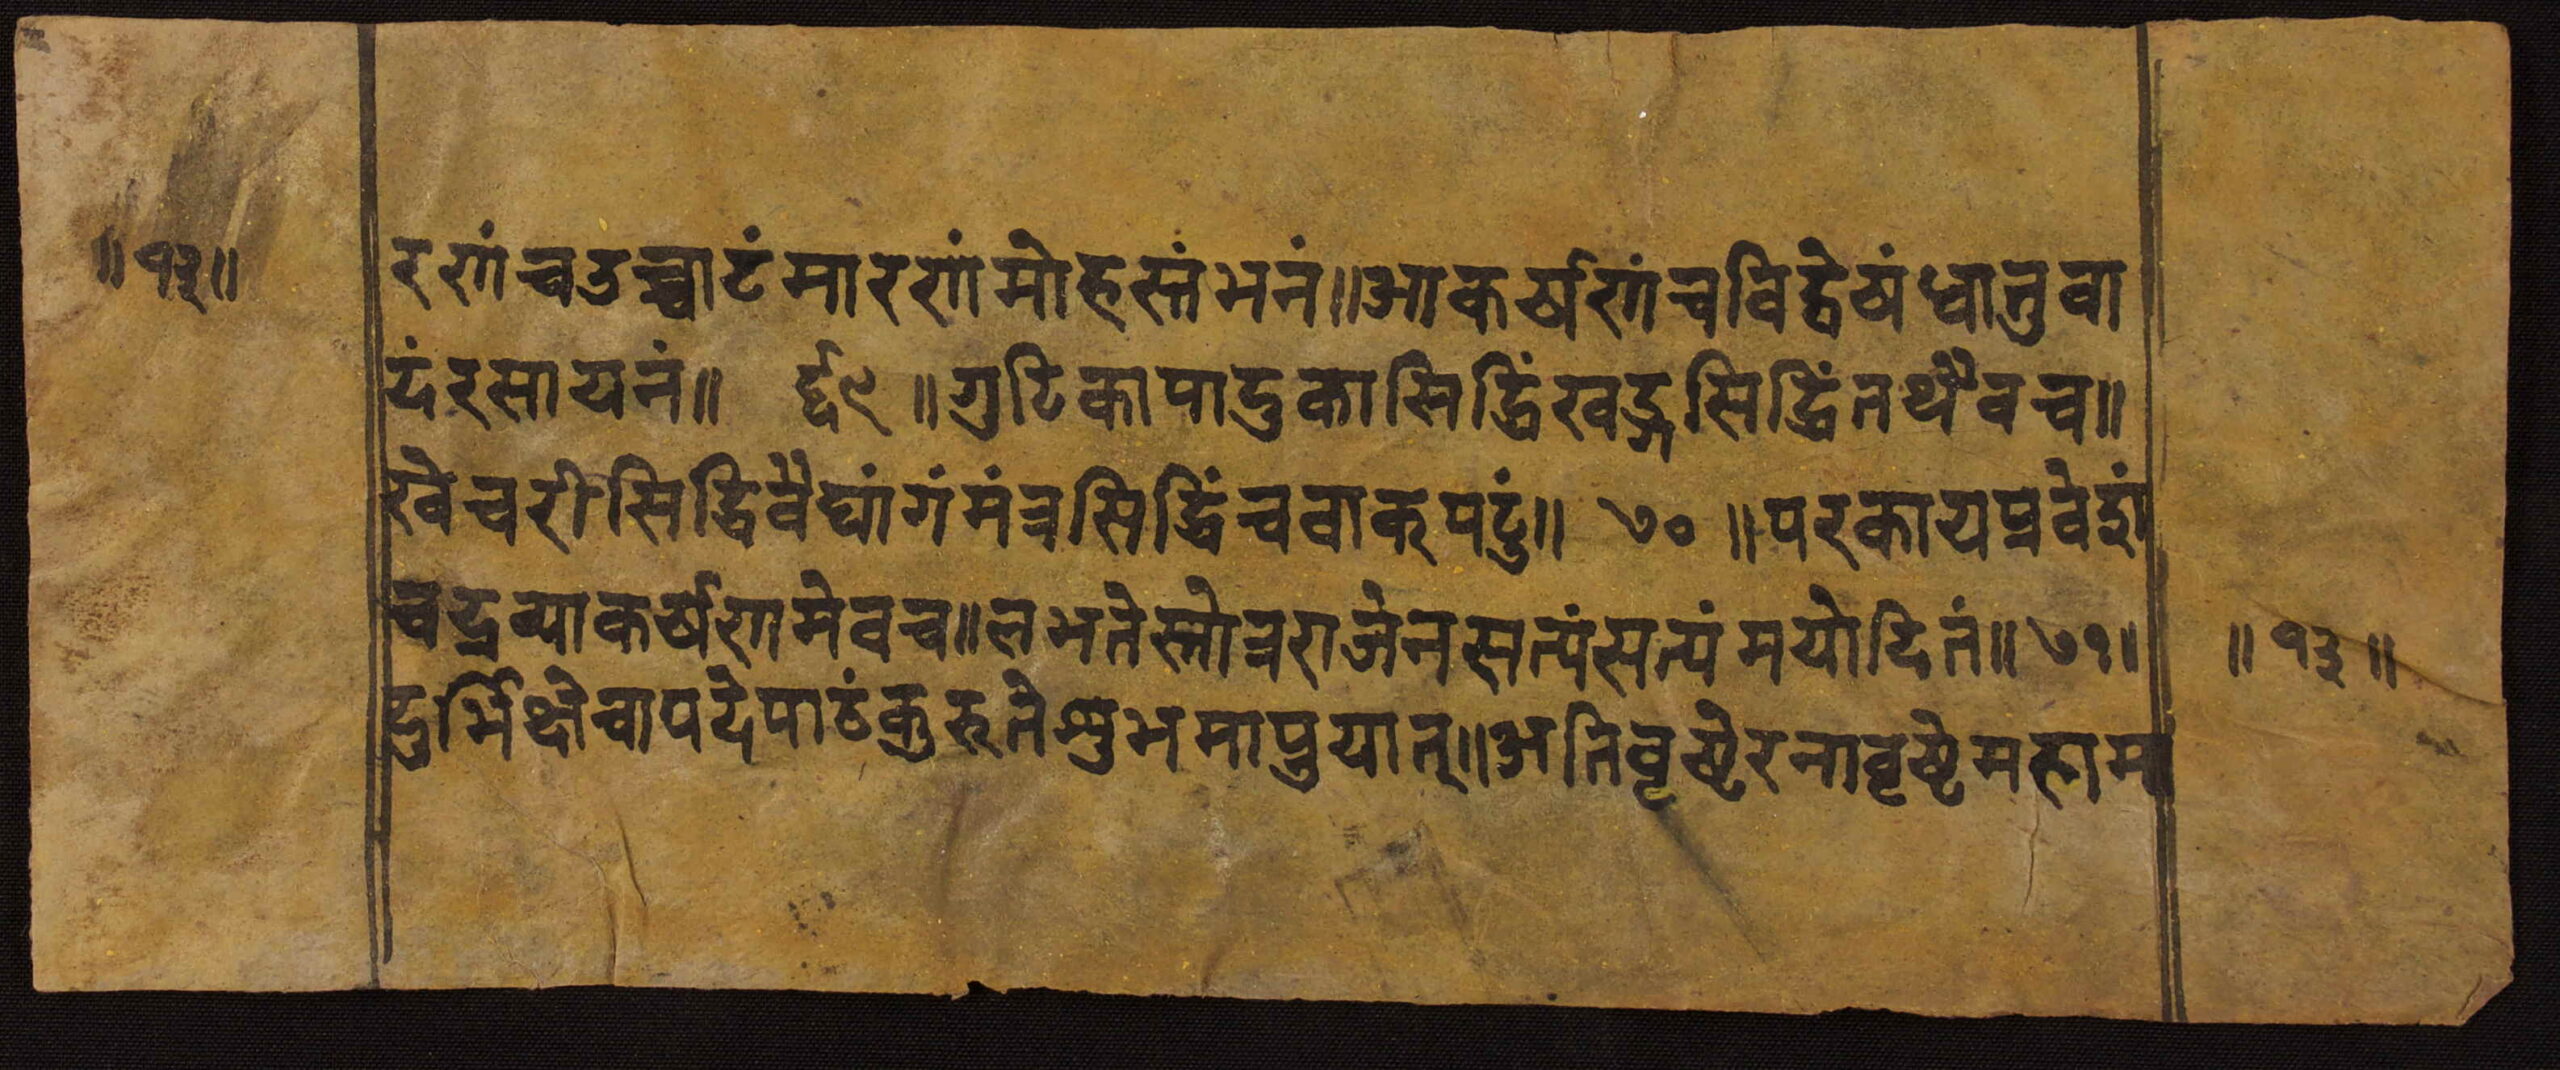 ॥१३॥
रणं च उच्चाटं मारणं मोहस्तंभनं॥ आकर्षणं च विद्वेषं धातुवा
दं रसायनं॥ ६९ ॥ गुटिकापादुकासिद्धिं खड्गसिद्धिं तथैव च॥
खेचरीसिद्धिवैद्यांगं मंत्रसिद्धिं च वाक्पटुं॥ ७० ॥ परकायप्रवेशं
च द्रव्याकर्षणमेव च॥ लभते स्तोत्रराजेन सत्यं सत्यं मयोदितं॥ ७१॥
॥ १३ ॥
दुर्भिक्षे चापदे पाठं कुरुते शुभमाप्नुयात्॥ अतिवृष्टेरनावृष्टे महाम